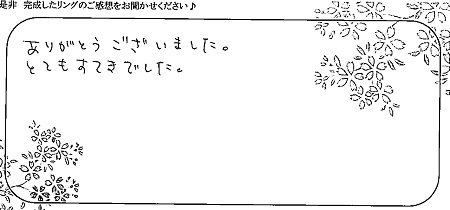 是非 完成したリングのご感想をお聞かせください♪
ありがとうございました。
とてもすてきでした。